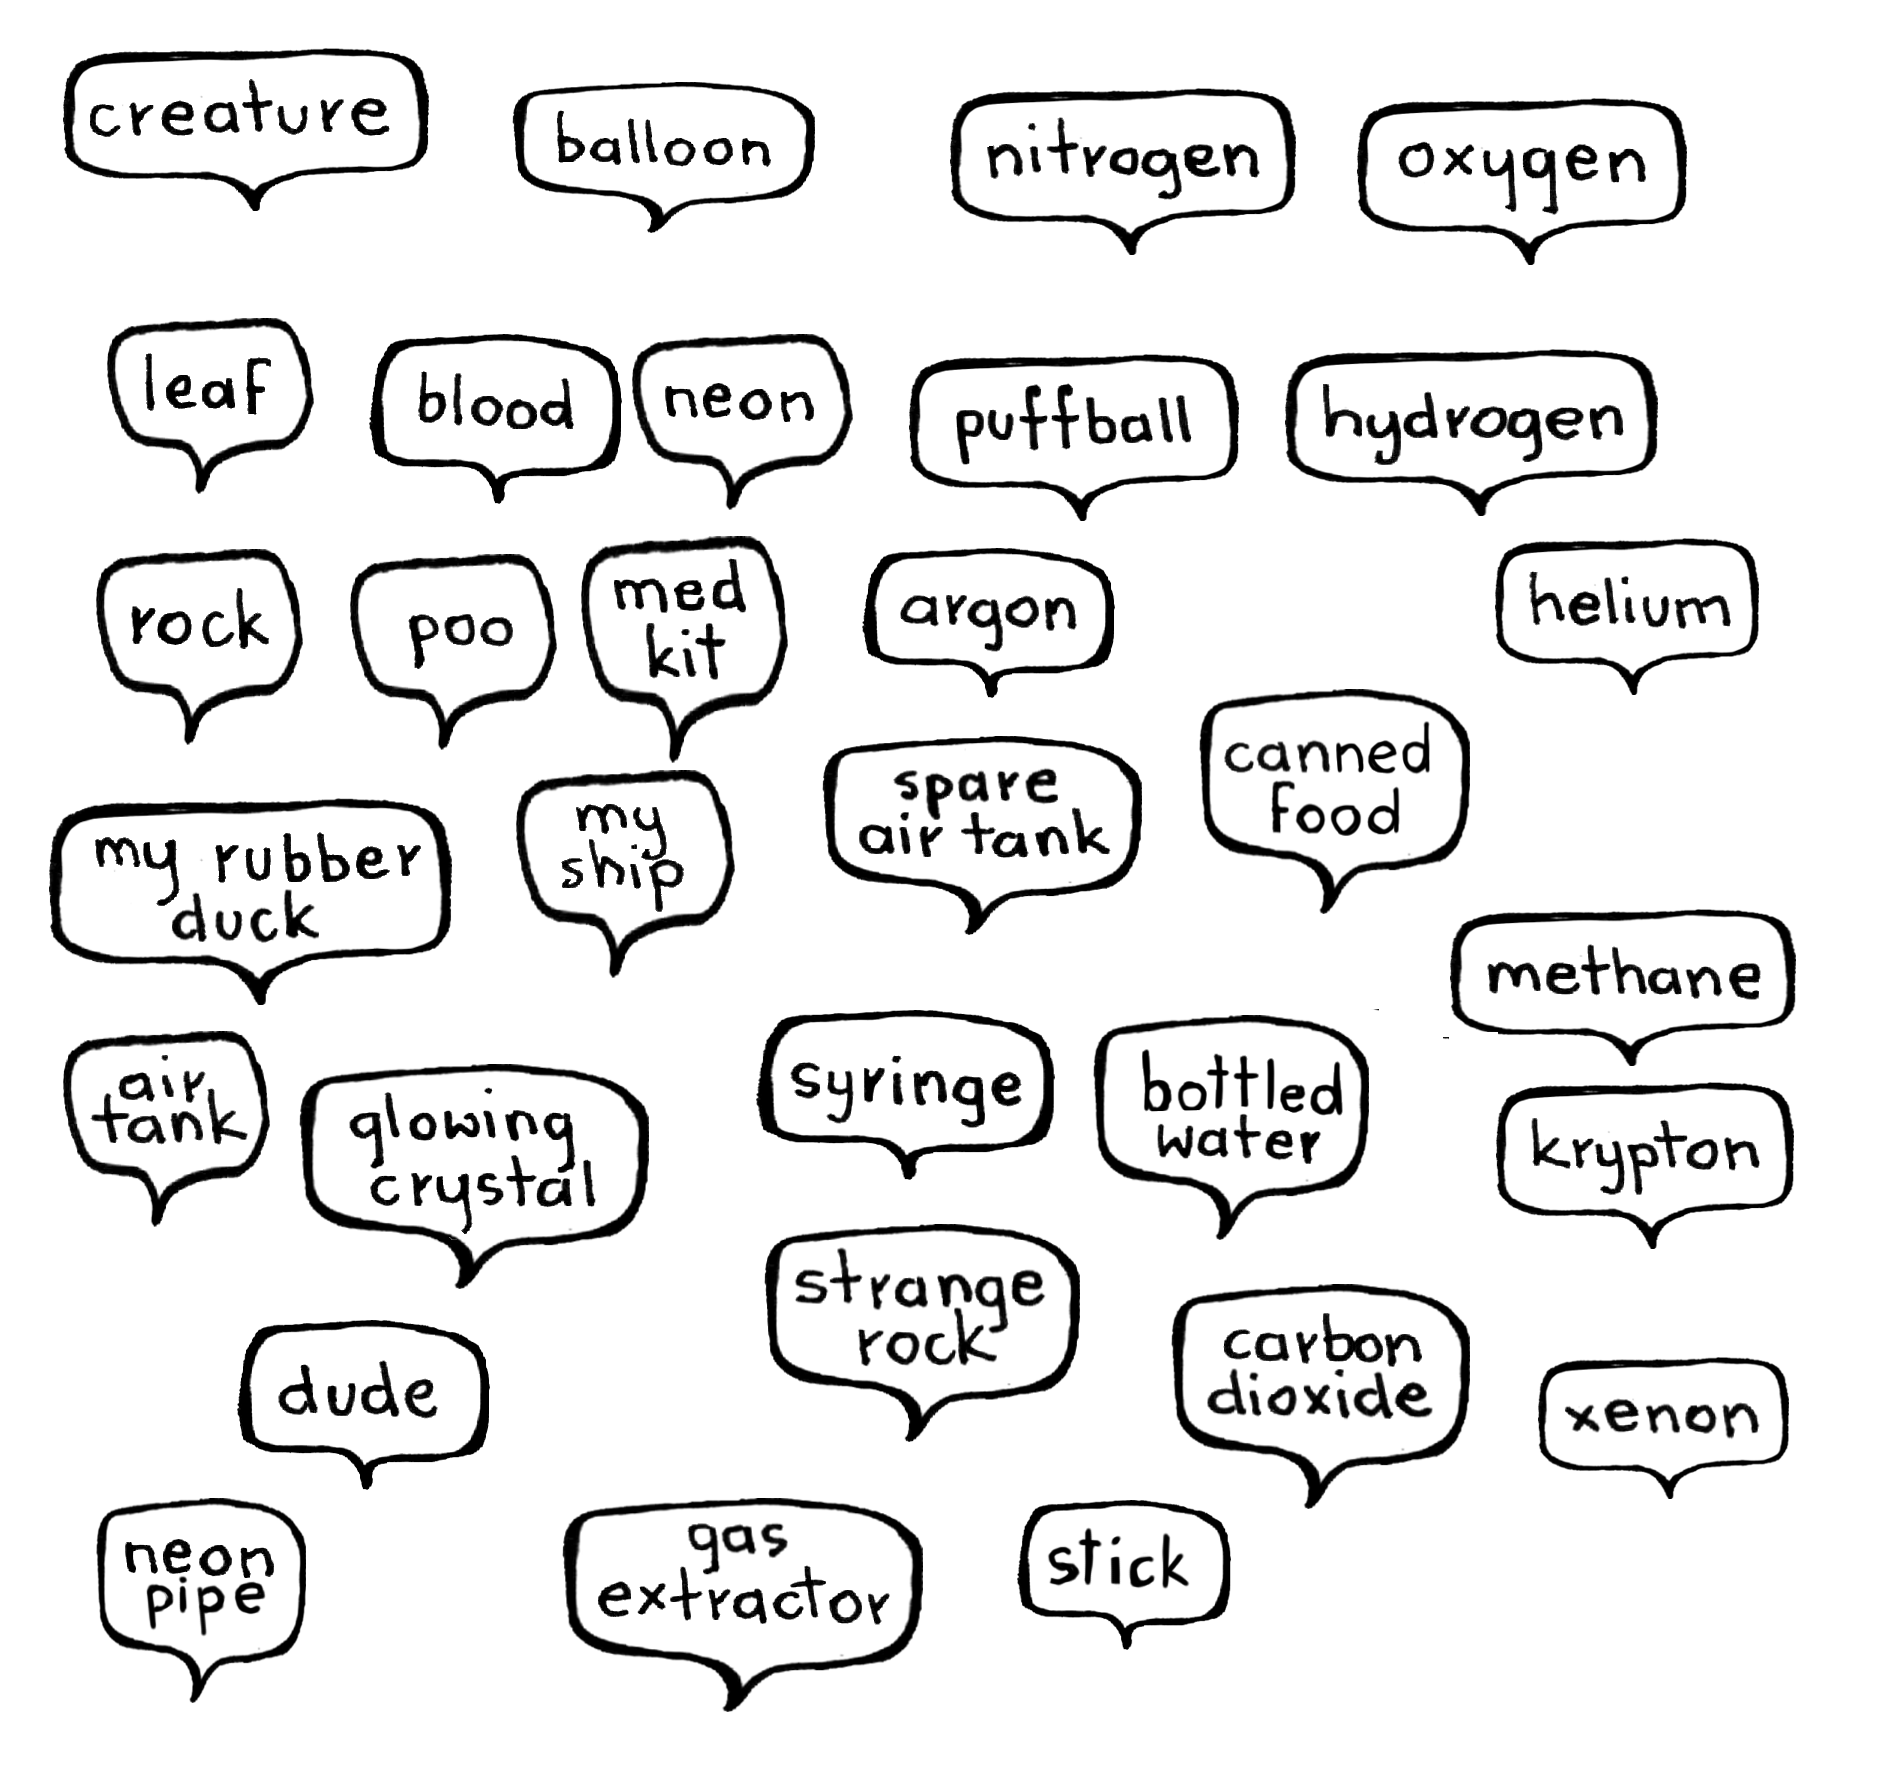 creature
balloon
nitrogen
oxygen
leaf
blood
neon
puffball
hydrogen
rock
poo
med
kit
argon
helium
my rubber
duck
my
ship
spare
air tank
canned
food
methane
air
tank
glowing
crystal
syringe
bottled
water
krypton
strange
rock
carbon
dioxide
dude
xenon
neon
pipe
gas
extractor
stick